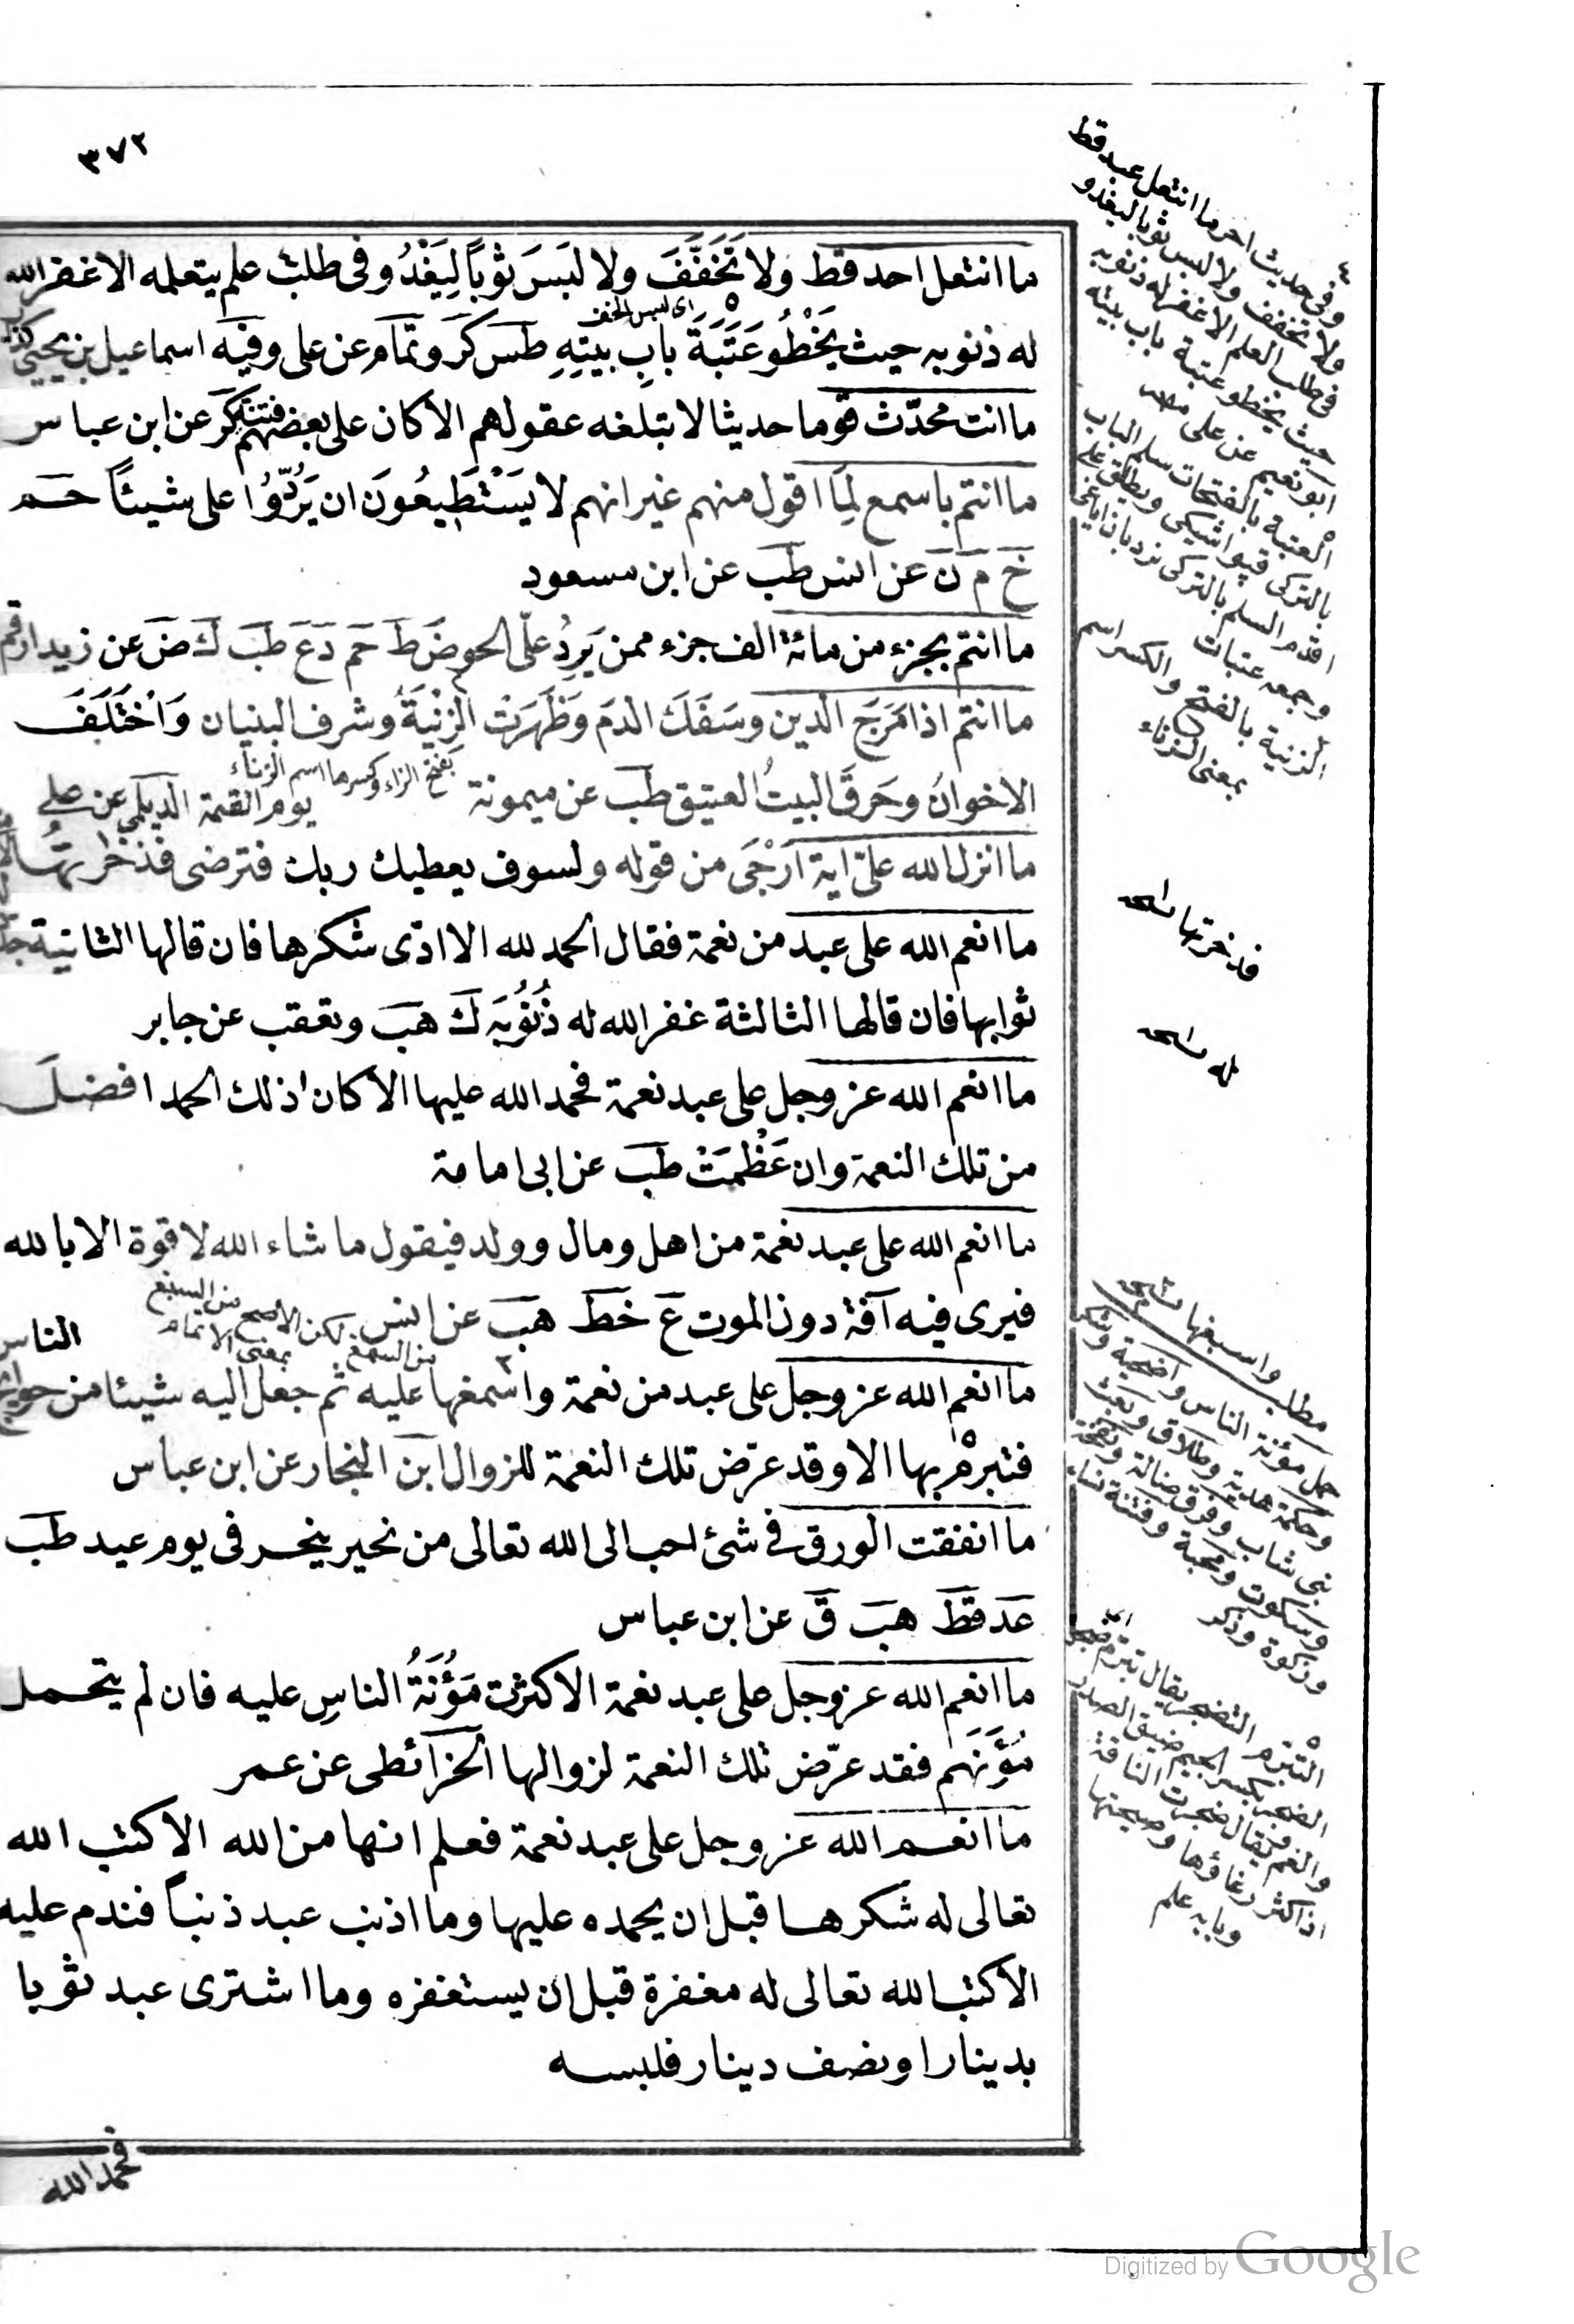 ٣٧٢
ما انتعل احد قط ولا تَخَفَّفَ ولا لبَسَ ثوباً لِيَغْدُ وفى طلب علم يتعلمه الا غفر الله
اى لبس الخف
له ذنوبه حيث يَخْطُو عَتَبَةَ بابِ بيتِهِ طس كر وتمام عن على وفيه اسماعيل بن يحيى
ما انت محدّث قوما حديثا لا تبلغه عقولهم الا كان على بعضهم فتنة كر عن ابن عباس
ما انتم باسمع لِمَا اقول منهم غير انهم لا يَسْتَطِيعُونَ ان يَرُدُّوُا على شيئاً حم
خ م ن عن انس طب عن ابن مسعود
ما انتم بجزء من مائة الف جزء ممن يَرِدُ علّى الحوض ط حم د ع طب ك ض عن زيد ارقم
ما انتم اذا مَرَجَ الدين وسَفَكَ الدمَ وَظَهَرَتْ الزنْيَةُ وشرف البنيان وَاخْتَلَفَ
بفتح الزاء وكسرها اسم الزناء
الاخوانُ وحَرقَ البيتُ العتيق طب عن ميمونة
يوم القيمة الديلمى عن على
ما انزل الله علىّ اية اَرْجَى من قوله ولسوف يعطيك ربك فترضى فذخرتُها
ما انعم الله على عبد من نعمة فقال الحمد لله الا ادّى شكرها فان قالها الثانية جدد
ثوابها فان قالها الثالثة غفر الله له ذُنُوبَه ك هب وتعقب عن جابر
ما انعم الله عز وجل على عبد نعمة فحمد الله عليها الا كان ذلك الحمد افضل
من تلك النعمة وان عَظُمَتْ طب عن ابى امامة
ما انعم الله على عبد نعمة من اهل ومال وولد فيقول ما شاء الله لا قوة الا بالله
فيرى فيه آفة دون الموت ع خط هب عن انس
لكن الاصح من السبغ بمعنى الاتمام
الناس
ما انعم الله عز وجل على عبد من نعمة واسمغها عليه ثم جعل اليه شيئا من حوايج
فتبرم بها الا وقد عرّض تلك النعمة للزوال ابن النجار عن ابن عباس
ما انفقت الورق فى شئ احب الى الله تعالى من نحير ينحر فى يوم عيد طب
عد قط هب ق عن ابن عباس
ما انعم الله عز وجل على عبد نعمة الا كثرت مَؤُنَةُ الناسِ عليه فان لم يتحمل
مُؤَنَهَم فقد عرّض تلك النعمة لزوالها الخرائطى عن عمر
ما انعم الله عز وجل على عبد نعمة فعلم انها من الله الا كتب الله
تعالى له شكرها قبل ان يحمده عليها وما اذنب عبد ذنباً فندم عليه
الا كتب الله تعالى له مغفرة قبل ان يستغفره وما اشترى عبد ثوبا
بدينار او نصف دينار فلبسه
فحمد الله
وفى حديث اخر ما انتعل عبد قط
ولا تخفف ولا لبس ثوبا ليغدو
فى طلب العلم الا غفر له ذنوبه
حيث يخطو عتبة باب بيته
ابو نعيم عن على
العتبة بالفتحات سلم الباب
بالتركى قپو اشيكى ويطلق على
اقدم السلم بالتركى نردبان اياغى
وجمعه عتبات
الزنية بالفتح والكسر اسم
بمعنى الزناء
فذخرتها نسخه
له نسخه
واسبغها نسخه
مطلب
حمل مؤنة الناس واضحية وشكر
وحكمة هدية وطلاق وبعث
نبى شاب وفرق ضالة ونفخة
وسكوت ومحبة وفتنة نساء
وزكوة وذكر
التبرم التضجر يقال تبرم اى ضجر
الضجر بكسر الجيم ضيق الصدر
والغم يقال ضجرت الناقة
اذا كثر رغاؤها وصيحتها
وبابه علم
Digitized by Google